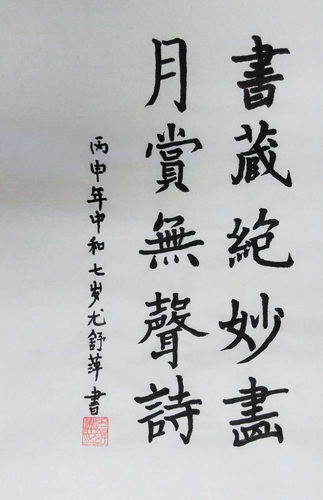 書藏絶妙畫
月賞無聲詩
丙申年中和七岁尤舒萍書